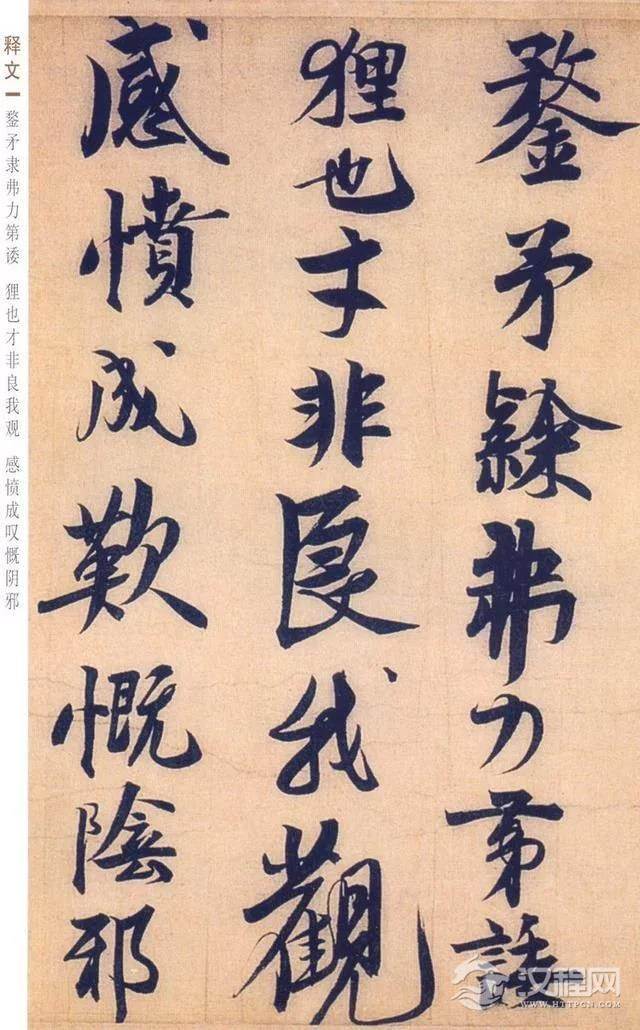 鍪矛隸弗力第諉
狸也才非良我觀
感憤成歎慨陰邪
释文 鍪矛隶弗力第诿 狸也才非良我观 感愤成叹慨阴邪
汉程网
WWW.HTTPCN.COM